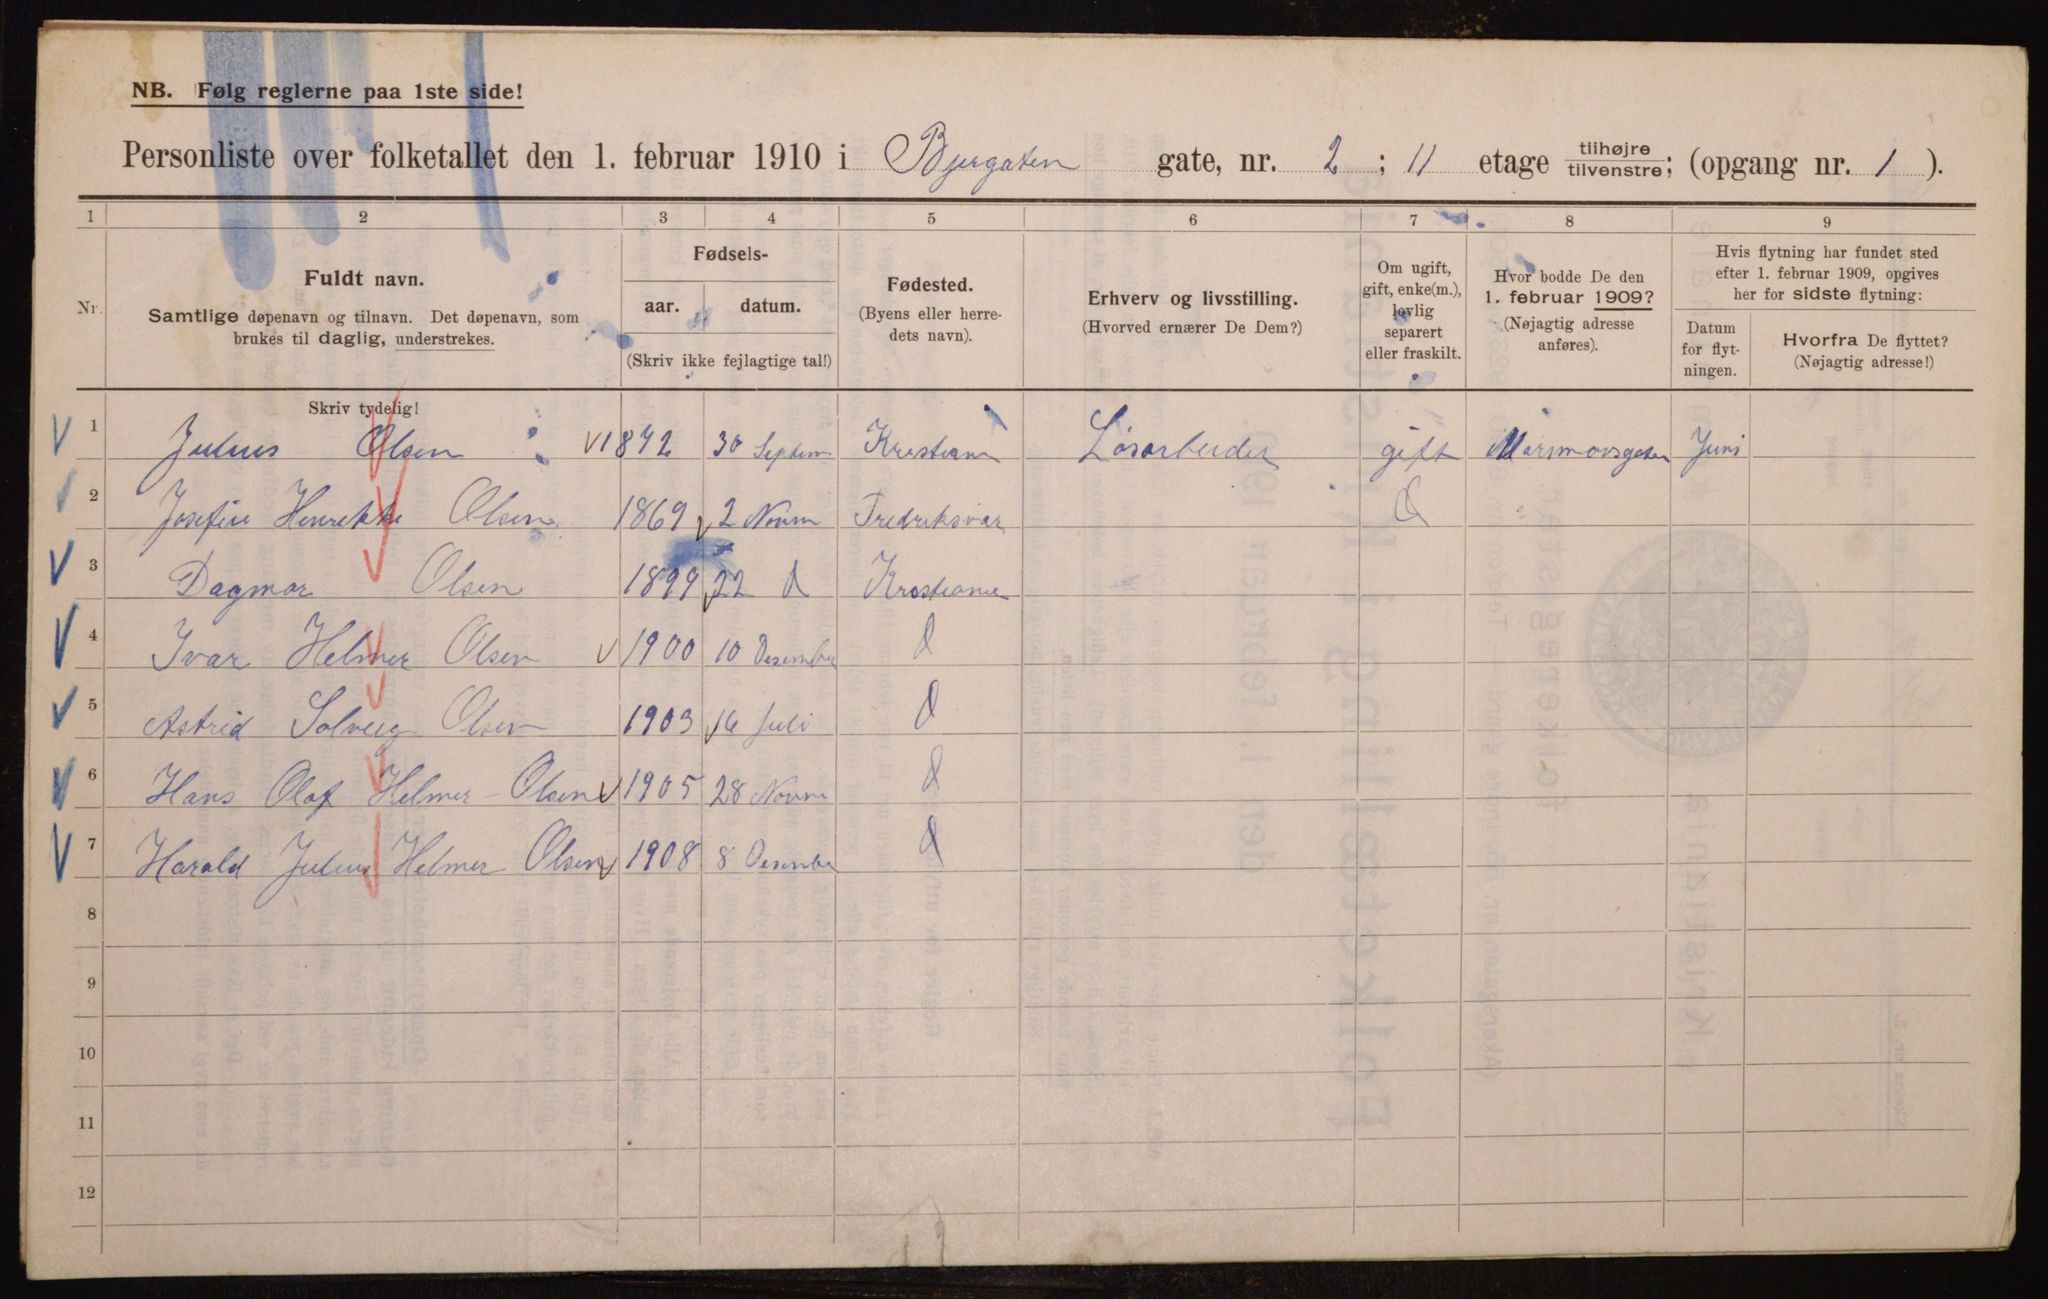 NB. Følg reglerne paa 1ste side!
Personliste over folketallet den 1. februar 1910 i Byergaten gate, nr. 2 ; 11 etage tilhøjre/tilvenstre; (opgang nr. 1 ).
1 2 3 4 5 6 7 8 9
Nr.
Fuldt navn.
Samtlige døpenavn og tilnavn. Det døpenavn, som
brukes til daglig, understrekes.
Fødsels-
aar. datum.
(Skriv ikke fejlagtige tal!)
Fødested.
(Byens eller herre-
dets navn).
Erhverv og livsstilling.
(Hvorved ernærer De Dem?)
Om ugift,
gift, enke(m.),
lovlig
separert
eller fraskilt.
Hvor bodde De den
1. februar 1909?
(Nøjagtig adresse
anføres).
Hvis flytning har fundet sted
efter 1. februar 1909, opgives
her for sidste flytning:
Datum
for flyt-
ningen.
Hvorfra De flyttet?
(Nøjagtig adresse!)
Skriv tydelig!
1 Julius Olsen 1872 30 Septem Kristiania Løsarbeider gift Juni
2 Josefine Henrikke Olsen 1869 2 Novm Fredriksvær
3 Dagmar Olsen 1899 22 d Kristiania
4 Ivar Helmer Olsen 1900 10 Desember d
5 Astrid Solveig Olsen 1903 16 Juli d
6 Hans Olaf Helmer Olsen 1905 28 Novm d
7 Harald Julius Helmer Olsen 1908 8 Desember d
8
9
10
11
12